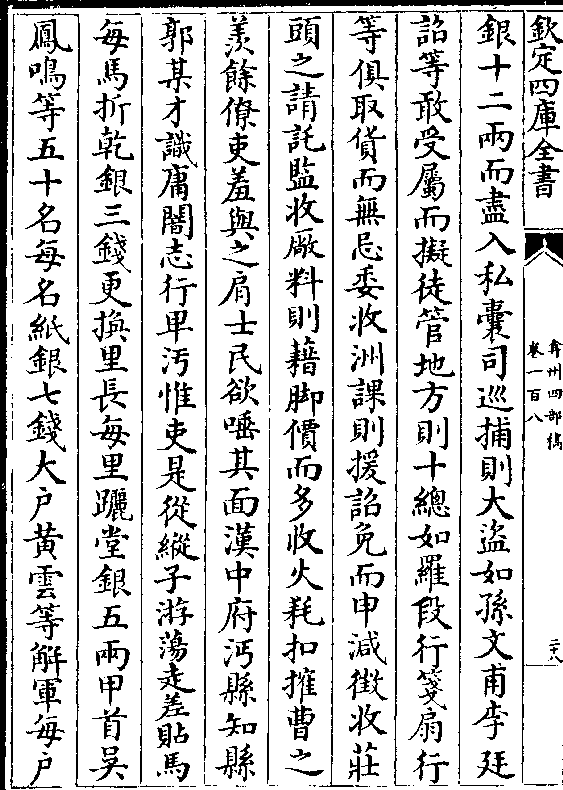 欽定四庫全書
弇州四部稿
卷一百八
二十八
銀十二兩而盡入私囊司巡捕則大盜如孫文甫李廷
詔等敢受屬而擬徒管地方則十總如羅段行箋扇行
等俱取貨而無忌委收洲課則援詔免而申減徵收莊
頭之請託監收厰料則藉脚價而多收火耗扣擁曹之
羡餘僚吏羞與之肩士民欲唾其面漢中府沔縣知縣
郭某才識庸闇志行卑汚惟吏是從縱子游蕩走差貼馬
每馬折乾銀三錢更換里長每里躧堂銀五兩甲首吳
鳳鳴等五十名每名紙銀七錢大户黃雲等解軍每户